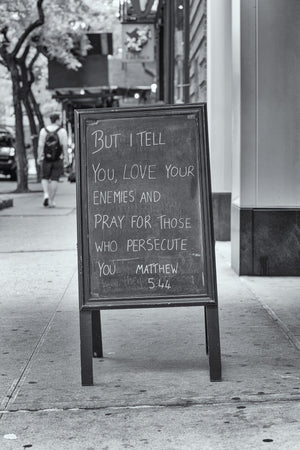 BUT I TELL
YOU, LOVE YOUR
ENEMIES AND
PRAY FOR THOSE
WHO PERSECUTE
YOU MATTHEW
5.44